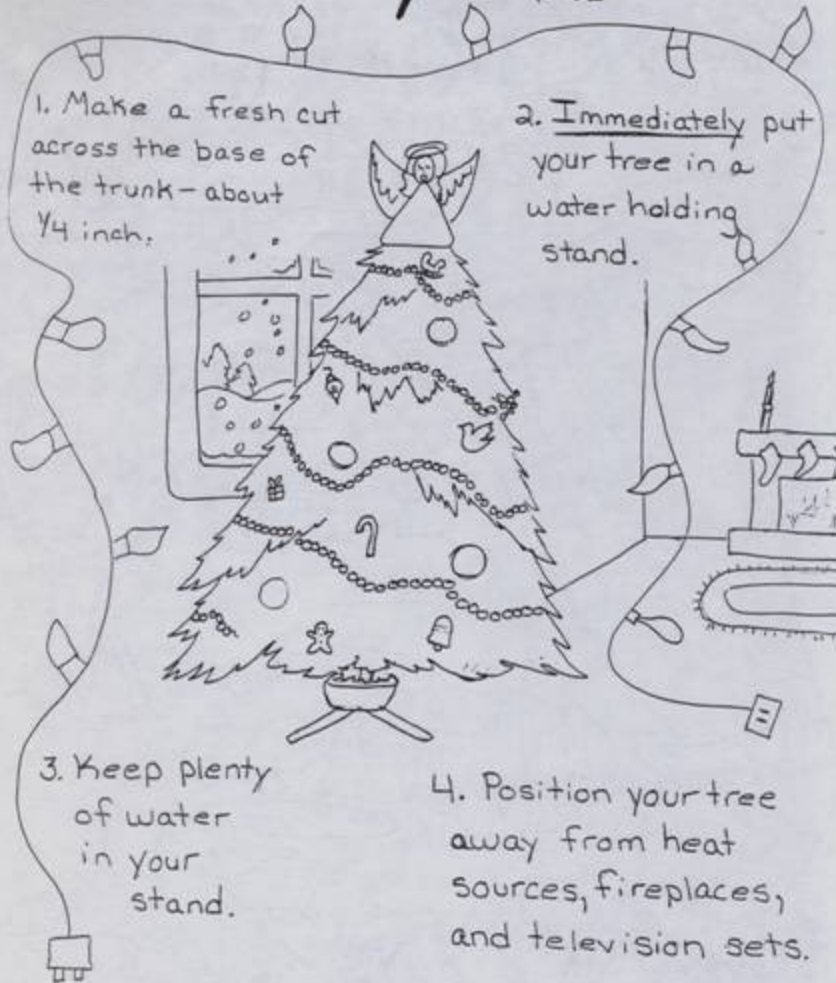 1. Make a fresh cut
across the base of
the trunk - about
1/4 inch.
2. Immediately put
your tree in a
water holding
stand.
3. Keep plenty
of water
in your
stand.
4. Position your tree
away from heat
sources, fireplaces,
and television sets.